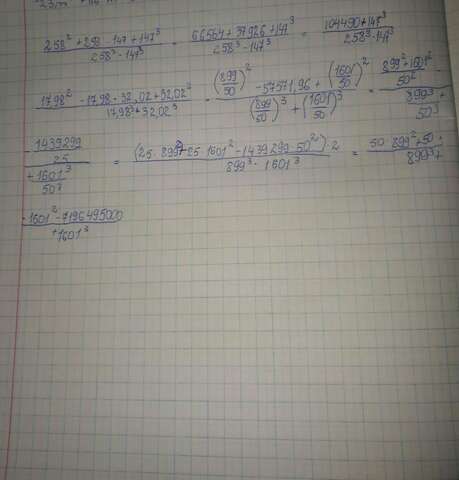 258² + 258 · 147 + 147³ / 258³ - 147³ = 66564 + 37926 + 147³ / 258³ - 147³ = 104490 + 147³ / 258³ - 147³
17,98² - 17,98 · 32,02 + 32,02² / 17,98³ + 32,02³ = (899/50)² - 57571,96 + (1601/50)² / (899/50)³ + (1601/50)³ = 899² + 1601² / 50² - / 899³ + / 50³
1439299 / 25 / + 1601³ / 50³ = (25 · 899² + 25 · 1601² - 1439299 · 50²) · 2 / 899³ - 1601³ = 50 · 899² + 50 · / 899³ +
· 1601² - 7196495000 / + 1601³